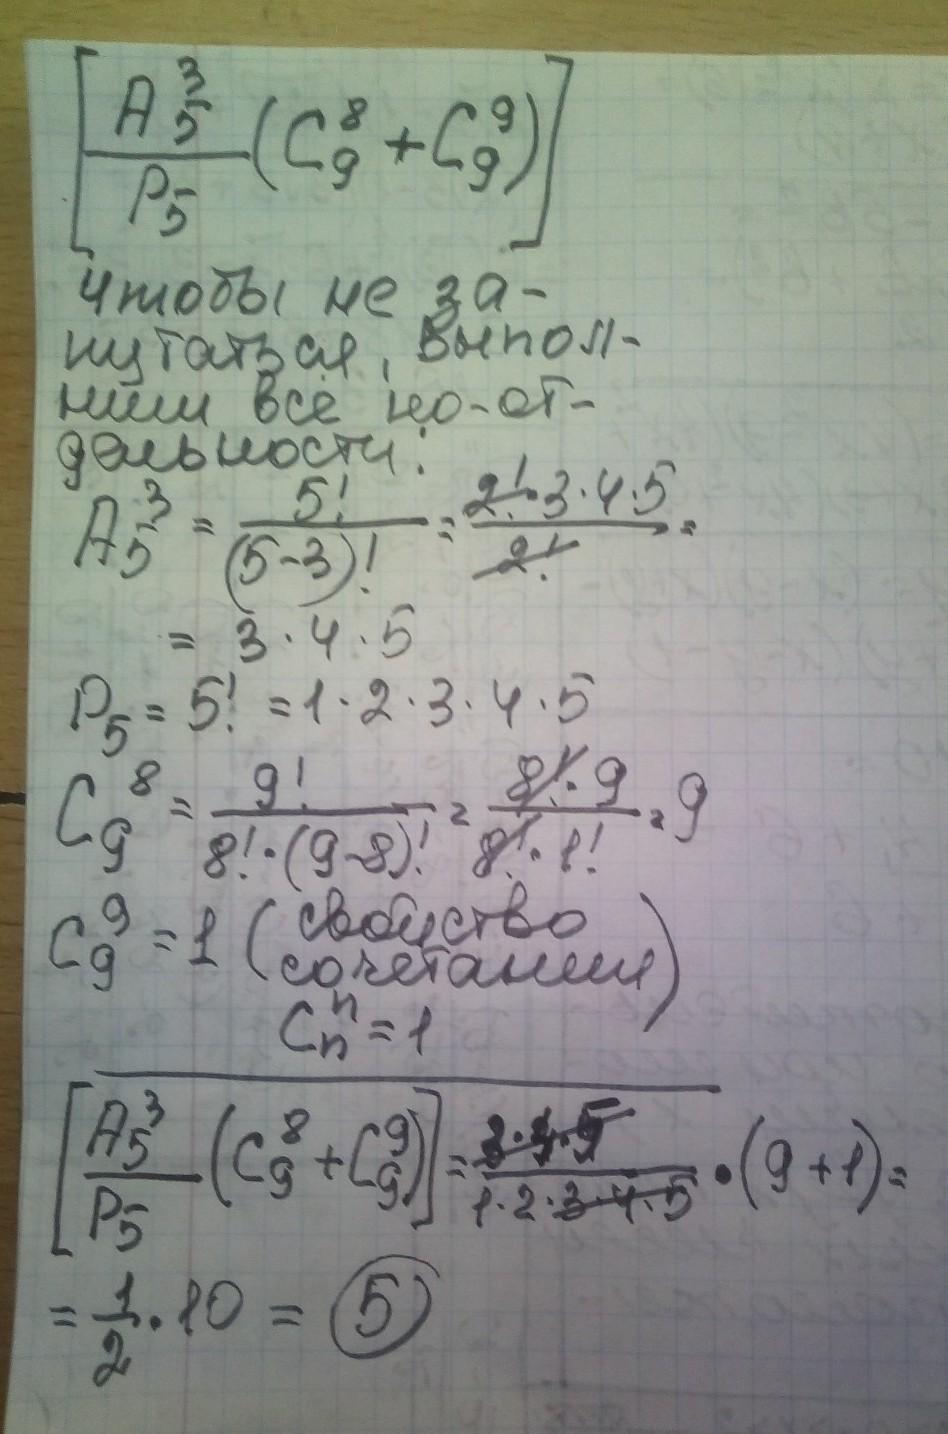 [A₅³/P₅ (C₉⁸ + C₉⁹)]
Чтобы не за-
путаться, выпол-
ним всё по-от-
дельности:
A₅³ = 5!/(5-3)! = 2!·3·4·5/2! =
= 3·4·5
P₅ = 5! = 1·2·3·4·5
C₉⁸ = 9!/8!·(9-8)! = 8!·9/8!·1! = 9
C₉⁹ = 1 (свойство
сочетании)
Cₙⁿ = 1
[A₅³/P₅ (C₉⁸ + C₉⁹)] = 3·4·5/1·2·3·4·5 · (9+1) =
= 1/2 · 10 = 5